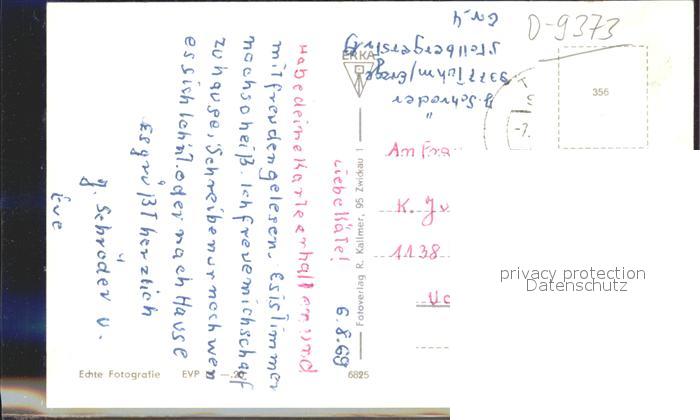 D-9373
356
-7.
Gr-4
Stollbergerstr. 9
9377 Thum/Erzgeb
J. Schröder
ERKA
An Fra
K. Ju
1138
privacy protection
Datenschutz
6.8.69
Liebe Käte!
Habe deine Karte erhalten und
mit freuden gelesen. Es ist immer
noch so heiß. Ich freue mich schauf
zu hause. Schreibe nur noch wen
es sich lohnt. oder nach Hause
Es grüßt herzlich
J. Schröder u.
Eve
Fotoverlag R. Kallmer, 95 Zwickau 1
Echte Fotografie EVP —.20
6825